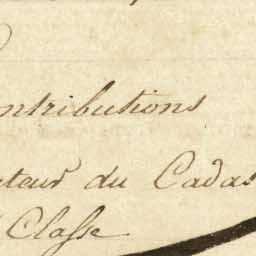 ntributions
cteur du Cadas
Classe